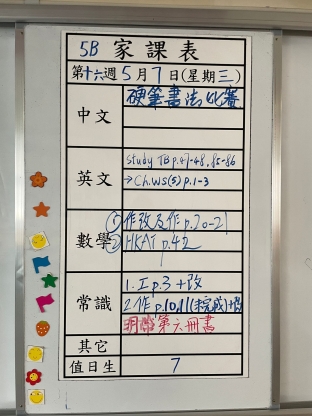 5B 家課表
第十六週5月7日(星期三)
中文
硬筆書法比賽
英文
study TB p.47-48, 85-86
→Ch.WS(5) p.1-3
數學
① 作改及作 p.20-21
② HKAT p.42
常識
1. I p.3 + 改
2 作 p.10,11(未完成)+
明帶第六冊書
其它
值日生
7